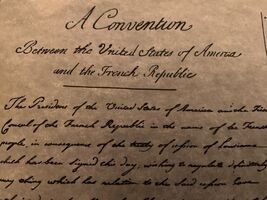 A Convention
Between the United States of America
and the French Republic
The President of the United States of America and the First
Consul of the French Republic in the name of the French
people, in consequence of the treaty of cession of Louisiana
which has been signed this day, wishing to regulate definitively
any thing which has relation to the said cession have